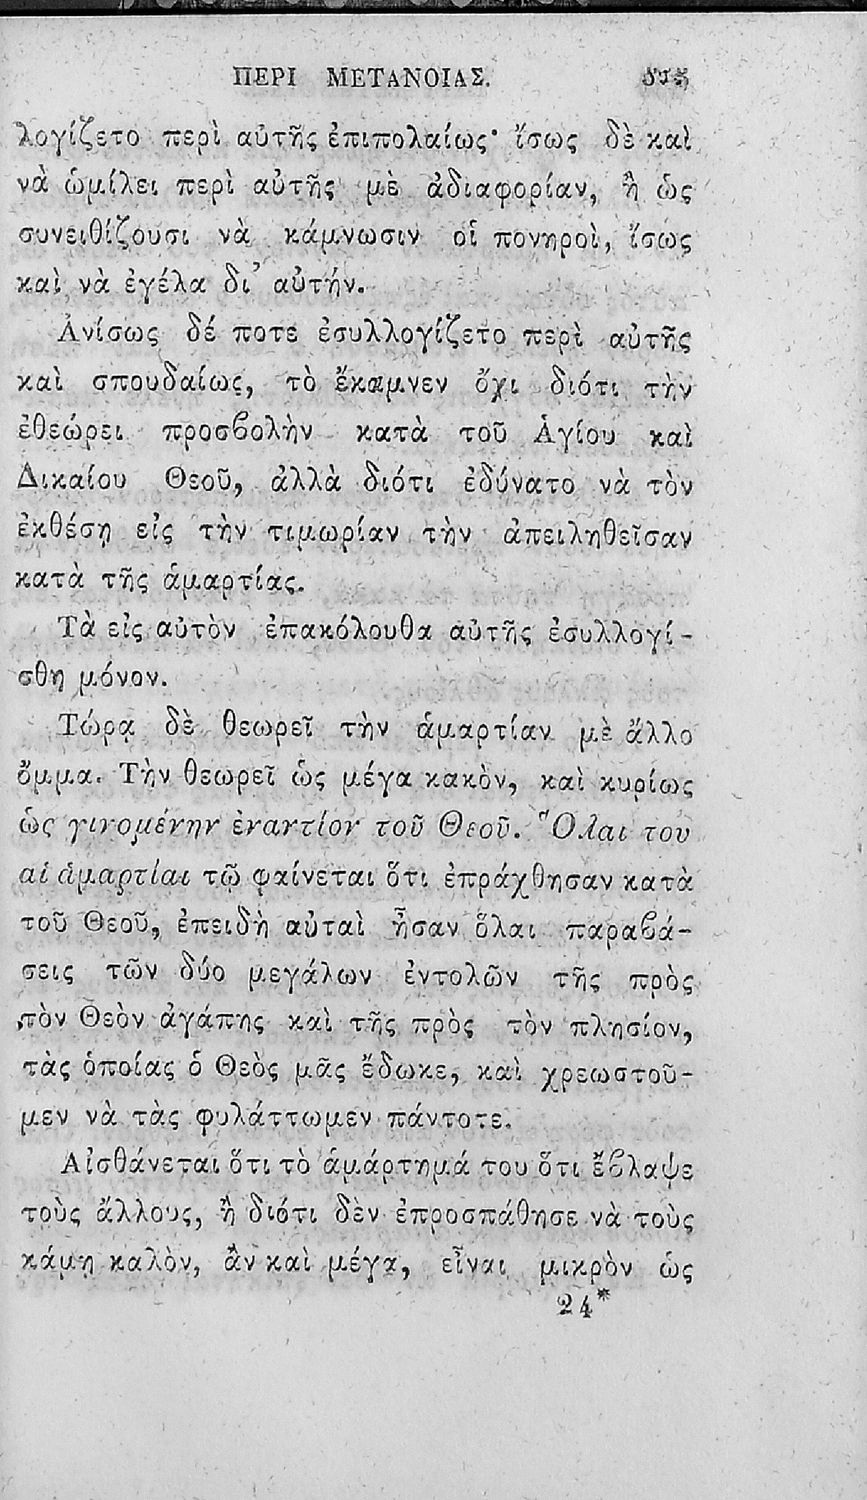 ΠΕΡΙ ΜΕΤΑΝΟΙΑΣ.
λογίζετο περὶ αὐτῆς ἐπιπολαίως· ἴσως δὲ καὶ
νὰ ὡμίλει περὶ αὐτῆς μὲ ἀδιαφορίαν, ἢ ὡς
συνειθίζουσι νὰ κάμνωσιν οἱ πονηροὶ, ἴσως
καὶ νὰ ἐγέλα δι’ αὐτήν.
Ἀνίσως δέ ποτε ἐσυλλογίζετο περὶ αὐτῆς
καὶ σπουδαίως, τὸ ἔκαμνεν ὄχι διότι τὴν
ἐθεώρει προσϐολὴν κατὰ τοῦ Ἁγίου καὶ
Δικαίου Θεοῦ, ἀλλὰ διότι ἐδύνατο νὰ τὸν
ἐκθέσῃ εἰς τὴν τιμωρίαν τὴν ἀπειληθεῖσαν
κατὰ τῆς ἁμαρτίας.
Τὰ εἰς αὐτὸν ἐπακόλουθα αὐτῆς ἐσυλλογί-
σθη μόνον.
Τώρα δὲ θεωρεῖ τὴν ἁμαρτίαν μὲ ἄλλο
ὄμμα. Τὴν θεωρεῖ ὡς μέγα κακὸν, καὶ κυρίως
ὡς γινομένην ἐναντίον τοῦ Θεοῦ. Ὅλαι του
αἱ ἁμαρτίαι τῷ φαίνεται ὅτι ἐπράχθησαν κατὰ
τοῦ Θεοῦ, ἐπειδὴ αὐταὶ ἦσαν ὅλαι παραϐά-
σεις τῶν δύο μεγάλων ἐντολῶν τῆς πρὸς
τὸν Θεὸν ἀγάπης καὶ τῆς πρὸς τὸν πλησίον,
τὰς ὁποίας ὁ Θεὸς μᾶς ἔδωκε, καὶ χρεωστοῦ-
μεν νὰ τὰς φυλάττωμεν πάντοτε.
Αἰσθάνεται ὅτι τὸ ἁμάρτημά του ὅτι ἔϐλαψε
τοὺς ἄλλους, ἢ διότι δὲν ἐπροσπάθησε νὰ τοὺς
κάμῃ καλὸν, ἂν καὶ μέγα, εἶναι μικρὸν ὡς
24*